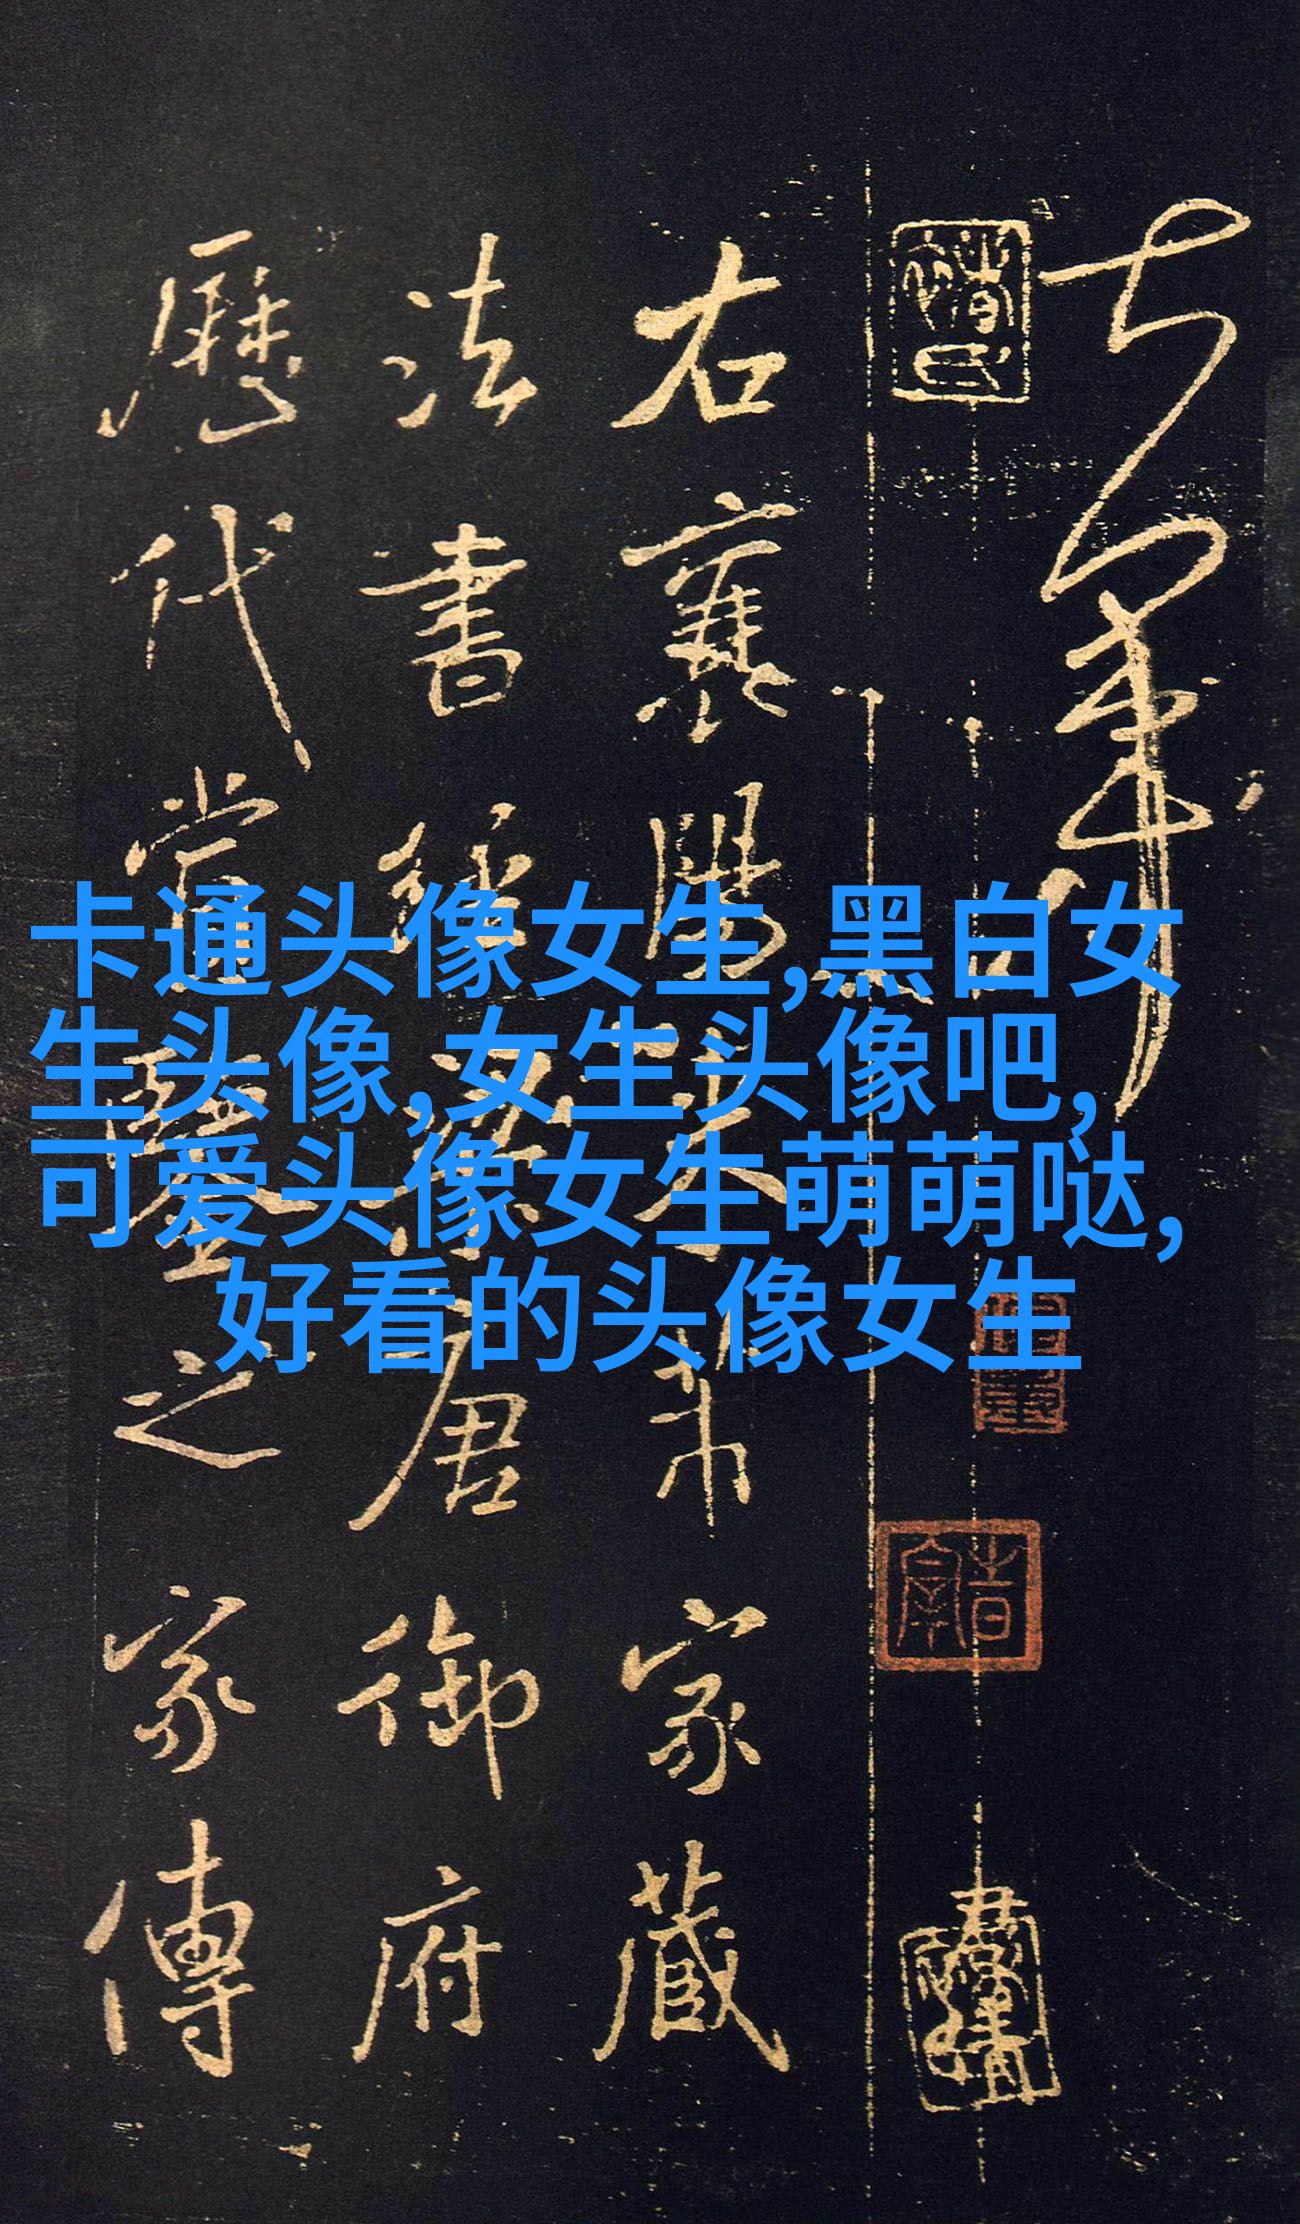 右襄陽米芾家藏
法書經梁唐御府
歷代賞鑒之家傳
卡通头像女生,黑白女
生头像,女生头像吧,
可爱头像女生萌萌哒,
好看的头像女生